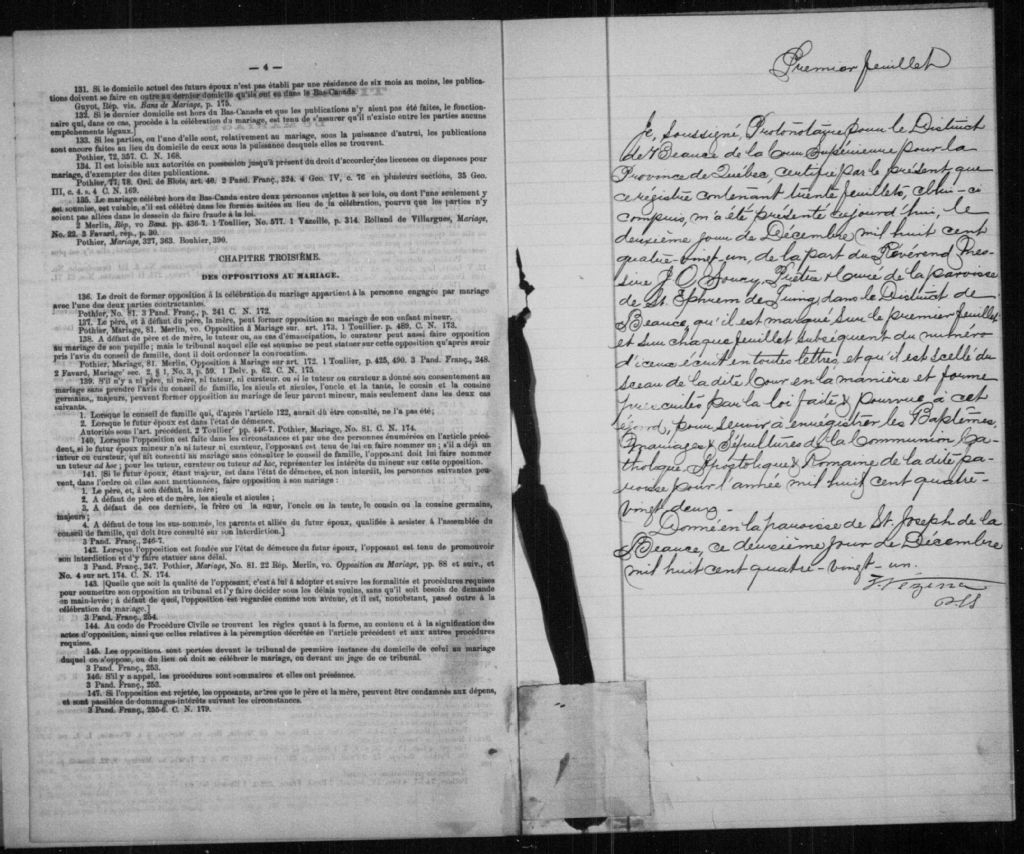 — 4 —
131. Si le domicile actuel des futurs époux n'est pas établi par une résidence de six mois au moins, les publica-
tions doivent se faire en outre au dernier domicile qu'ils ont eu dans le Bas-Canada.
Guyot, Rép. vis. Bans de Mariage, p. 175.
132. Si le dernier domicile est hors du Bas-Canada et que les publications n'y aient pas été faites, le fonction-
naire qui, dans ce cas, procède à la célébration du mariage, est tenu de s'assurer qu'il n'existe entre les parties aucuns
empêchements légaux.]
133. Si les parties, ou l'une d'elle sont, relativement au mariage, sous la puissance d'autrui, les publications
sont encore faites au lieu du domicile de ceux sous la puissance desquels elles se trouvent.
Pothier, 72, 357. C. N. 168.
134. Il est loisible aux autorités en possession jusqu'à présent du droit d'accorder des licences ou dispenses pour
mariage, d'exempter des dites publications.
Pothier, 77, 78. Ord. de Blois, art. 40. 2 Pand. Franç., 324. 4 Geo. IV, c. 76 en plusieurs sections, 35 Geo.
III, c. 4 s. 4 C. N. 169.
135. Le mariage célébré hors du Bas-Canada entre deux personnes sujettes à ses lois, ou dont l'une seulement y
est soumise, est valable, s'il est célébré dans les formes usitées au lieu de la célébration, pourvu que les parties n'y
soient pas allées dans le dessein de faire fraude à la loi.
2 Merlin, Rép, vo Bans. pp. 436-7. 1 Toullier, No. 577. 1 Vazeille, p. 314. Rolland de Villargues, Mariage,
No. 22. 3 Favard, rép., p. 30.
Pothier, Mariage, 327, 363. Bouhier, 390.
CHAPITRE TROISIÈME.
DES OPPOSITIONS AU MARIAGE.
136. Le droit de former opposition à la célébration du mariage appartient à la personne engagée par mariage
avec l'une des deux parties contractantes.
Pothier, No. 81. 3 Pand. Franç., p. 241 C. N. 172.
137. Le père, et à défaut du père, la mère, peut former opposition au mariage de son enfant mineur.
Pothier, Mariage, 81. Merlin, vo. Opposition à Mariage sur. art. 173. 1 Touillier. p. 489. C. N. 173.
138. A défaut de père et de mère, le tuteur ou, au cas d'émancipation, le curateur peut aussi faire opposition
au mariage de son pupille; mais le tribunal auquel elle est soumise ne peut statuer sur cette opposition qu'après avoir
pris l'avis du conseil de famille, dont il doit ordonner la convocation.
Pothier, Mariage, 81. Merlin, Opposition à Mariage sur art. 172. 1 Toullier, p. 425, 490. 3 Pand. Franç., 248.
2 Favard, Mariage sec. 2, § 1, No. 3, p. 59. 1 Delv. p. 62. C. N. 175
139. S'il n'y a ni père, ni mère, ni tuteur, ni curateur, ou si le tuteur ou curateur a donné son consentement au
mariage sans prendre l'avis du conseil de famille, les aïeuls et aïeules, l'oncle et la tante, le cousin et la cousine
germains, majeurs, peuvent former opposition au mariage de leur parent mineur, mais seulement dans les deux cas
suivants.
1. Lorsque le conseil de famille qui, d'après l'article 122, aurait dû être consulté, ne l'a pas été;
2. Lorsque le futur époux est dans l'état de démence.
Autorités sous l'art. précédent. 2 Toullier pp. 446-7. Pothier, Mariage, No. 81. C. N. 174.
140. Lorsque l'opposition est faite dans les circonstances et par une des personnes énumérées en l'article précé-
dent, si le futur époux mineur n'a ni tuteur ni curateur, l'opposant est tenu de lui en faire nommer un; s'il a déjà un
tuteur ou curateur, qui ait consenti au mariage sans consulter le conseil de famille, l'opposant doit lui faire nommer
un tuteur ad hoc; pour les tuteur, curateur ou tuteur ad hoc, représenter les intérêts du mineur sur cette opposition.
141. [Si le futur époux, étant majeur, est dans l'état de démence, et non interdit, les personnes suivantes peu-
vent, dans l'ordre où elles sont mentionnées, faire opposition à son mariage:
1. Le père, et, à son défaut, la mère;
2. A défaut de père et de mère, les aïeuls et aïeules;
3. A défaut de ces derniers, le frère ou la sœur, l'oncle ou la tante, le cousin ou la cousine germains,
majeurs;
4. A défaut de tous les sus-nommés, les parents et alliés du futur époux, qualifiés à assister à l'assemblée du
conseil de famille, qui doit être consulté sur son interdiction.]
3 Pand. Franç., 246-7.
142. Lorsque l'opposition est fondée sur l'état de démence du futur époux, l'opposant est tenu de promouvoir
son interdiction et d'y faire statuer sans délai.
3 Pand. Franç., 247. Pothier, Mariage, No. 81. 22 Rép. Merlin, vo. Opposition au Mariage, pp. 88 et suiv., et
No. 4 sur art. 174. C. N. 174.
143. [Quelle que soit la qualité de l'opposant, c'est à lui à adopter et suivre les formalités et procédures requises
pour soumettre son opposition au tribunal et l'y faire décider sous les délais voulus, sans qu'il soit besoin de demande
en main-levée; à défaut de quoi, l'opposition est regardée comme non avenue, et il est, nonobstant, passé outre à la
célébration du mariage.]
3 Pand. Franç., 254.
144. Au code de Procédure Civile se trouvent les règles quant à la forme, au contenu et à la signification des
actes d'opposition, ainsi que celles relatives à la péremption décrétée en l'article précédent et aux autres procédures
requises.
145. Les oppositions sont portées devant le tribunal de première instance du domicile de celui au mariage
duquel on s'oppose, ou du lieu où doit se célébrer le mariage, ou devant un juge de ce tribunal.
3 Pand. Franç., 253.
146. S'il y a appel, les procédures sont sommaires et elles ont préséance.
3 Pand. Franç., 253.
147. Si l'opposition est rejetée, les opposants, autres que le père et la mère, peuvent être condamnés aux dépens,
et sont passibles de dommages-intérêts suivant les circonstances.
3 Pand. Franç., 255-6. C. N. 179.
Premier feuillet
Je, soussigné, Protonotaire pour le District
de Beauce de la Cour Supérieure pour la
Province de Québec, certifie par le présent que
ce régistre contenant trente feuillets, celui-ci
compris, m'a été présenté aujourd'hui, le
deuxième jour de Décembre mil huit cent
quatre-vingt-un, de la part du Révérend Mes-
sire J. O. Soucy, Prêtre & Curé de la paroisse
de St. Ephrem de Tring, dans le District de
Beauce, qu'il est marqué sur le premier feuillet
et sur chaque feuillet subséquent du numéro
d'iceux écrit en toutes lettres, et qu'il est scellé du
sceau de la dite Cour en la manière et forme
prescrites par la loi faite & pourvue à cet
égard, pour servir à enrégistrer les Baptêmes,
Mariages & Sépultures de la Communion Ca-
tholique, Apostolique & Romaine de la dite pa-
roisse pour l'année mil huit cent quatre-
vingt-deux.
Donné en la paroisse de St. Joseph de la
Beauce, ce deuxième jour de Décembre
mil huit cent quatre-vingt-un.
Vezina